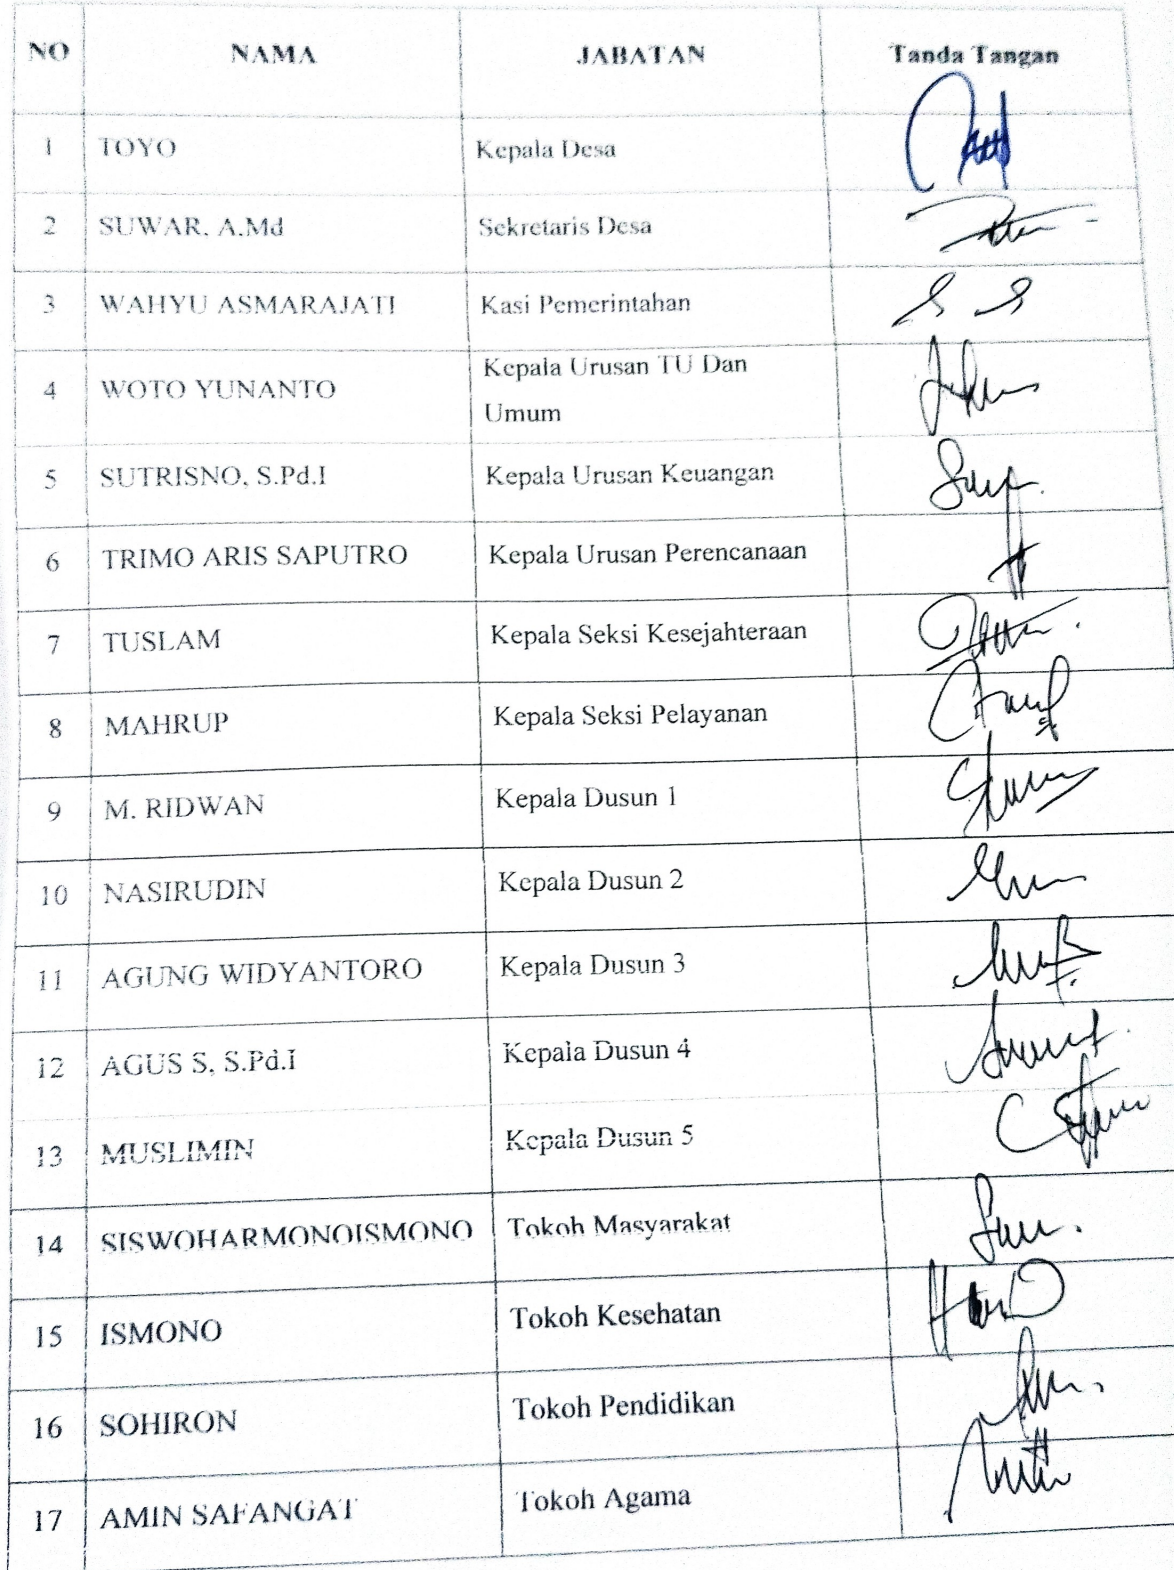 NO NAMA JABATAN Tanda Tangan
1 TOYO Kepala Desa
2 SUWAR, A.Md Sekretaris Desa
3 WAHYU ASMARAJATI Kasi Pemerintahan
4 WOTO YUNANTO Kepala Urusan TU Dan
Umum
5 SUTRISNO, S.Pd.I Kepala Urusan Keuangan
6 TRIMO ARIS SAPUTRO Kepala Urusan Perencanaan
7 TUSLAM Kepala Seksi Kesejahteraan
8 MAHRUP Kepala Seksi Pelayanan
9 M. RIDWAN Kepala Dusun 1
10 NASIRUDIN Kepala Dusun 2
11 AGUNG WIDYANTORO Kepala Dusun 3
12 AGUS S, S.Pd.I Kepala Dusun 4
13 MUSLIMIN Kepala Dusun 5
14 SISWOHARMONOISMONO Tokoh Masyarakat
15 ISMONO Tokoh Kesehatan
16 SOHIRON Tokoh Pendidikan
17 AMIN SAFANGAT Tokoh Agama